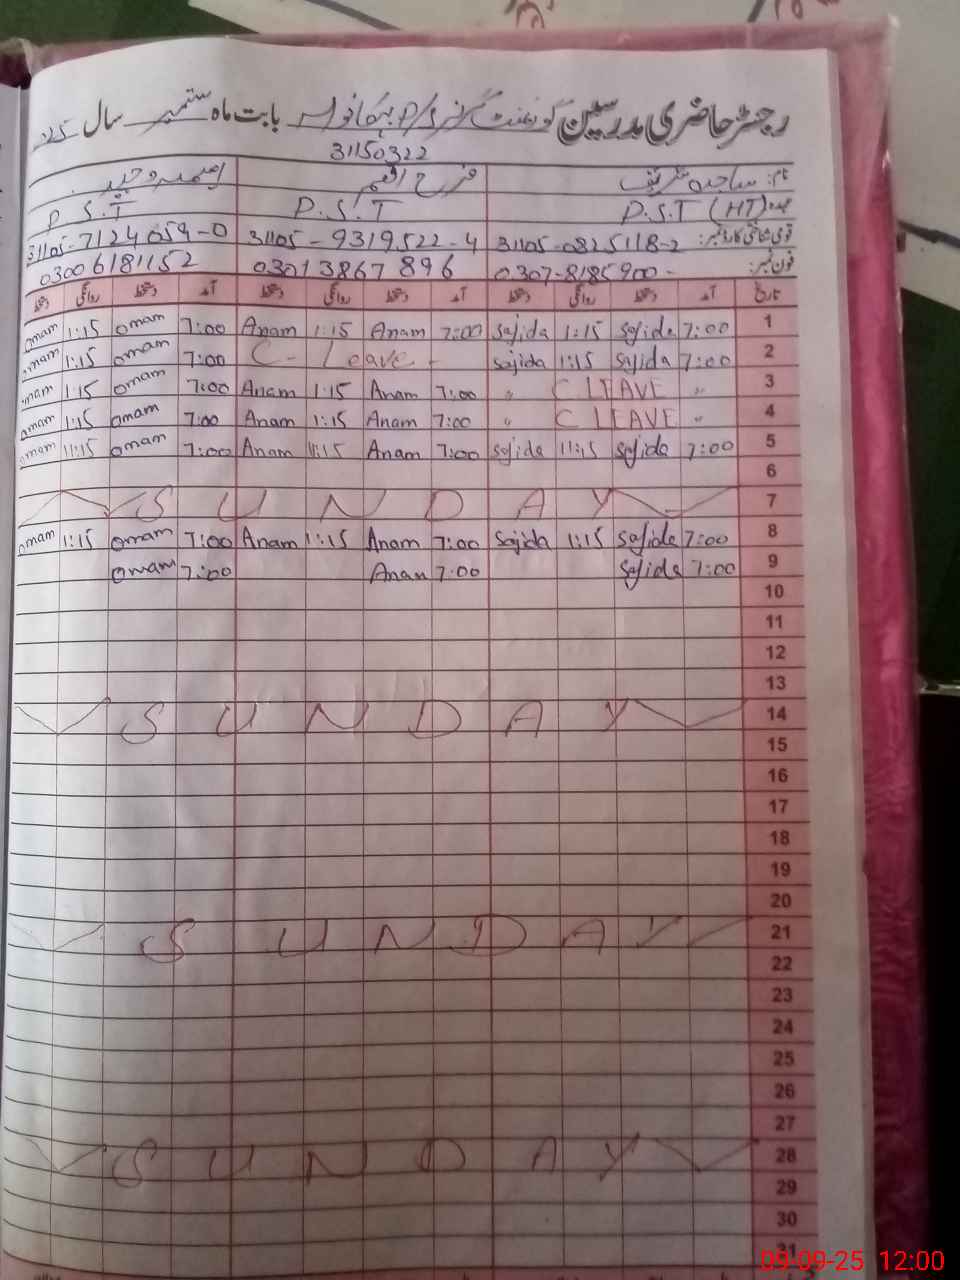 رجسٹر حاضری مدرسین گورنمنٹ گرلز P/S بابت ماہ ستمبر سال 25ء
31150322
نام: ساجدہ شریف فرح انعم وحید
عہدہ: P.S.T (HT) P.S.T P.S.T
قومی شناختی کارڈ نمبر: 31105-0825118-2 31105-9319522-4 31105-7124059-0
فون نمبر: 0307-8185900- 03013867896 03006181152
تاریخ آمد دستخط روانگی دستخط آمد دستخط روانگی دستخط آمد دستخط روانگی دستخط
omam 1:15 omam 7:00 Anam 1:15 Anam 7:00 sajida 1:15 sajida 7:00 1
omam 1:15 omam 7:00 C- Leave - sajida 1:15 sajida 7:00 2
omam 1:15 omam 7:00 Anam 1:15 Anam 7:00 " C.LEAVE " 3
omam 1:15 omam 7:00 Anam 1:15 Anam 7:00 " C LEAVE " 4
omam 11:15 omam 7:00 Anam 11:15 Anam 7:00 sajida 11:15 sajida 7:00 5
6
S U N D A Y 7
omam 1:15 omam 7:00 Anam 1:15 Anam 7:00 sajida 1:15 sajida 7:00 8
omam 7:00 Anam 7:00 sajida 7:00 9
10
11
12
13
S U N D A Y 14
15
16
17
18
19
20
S U N D A Y 21
22
23
24
25
26
27
S U N D A Y 28
29
30
31
09-09-25 12:00